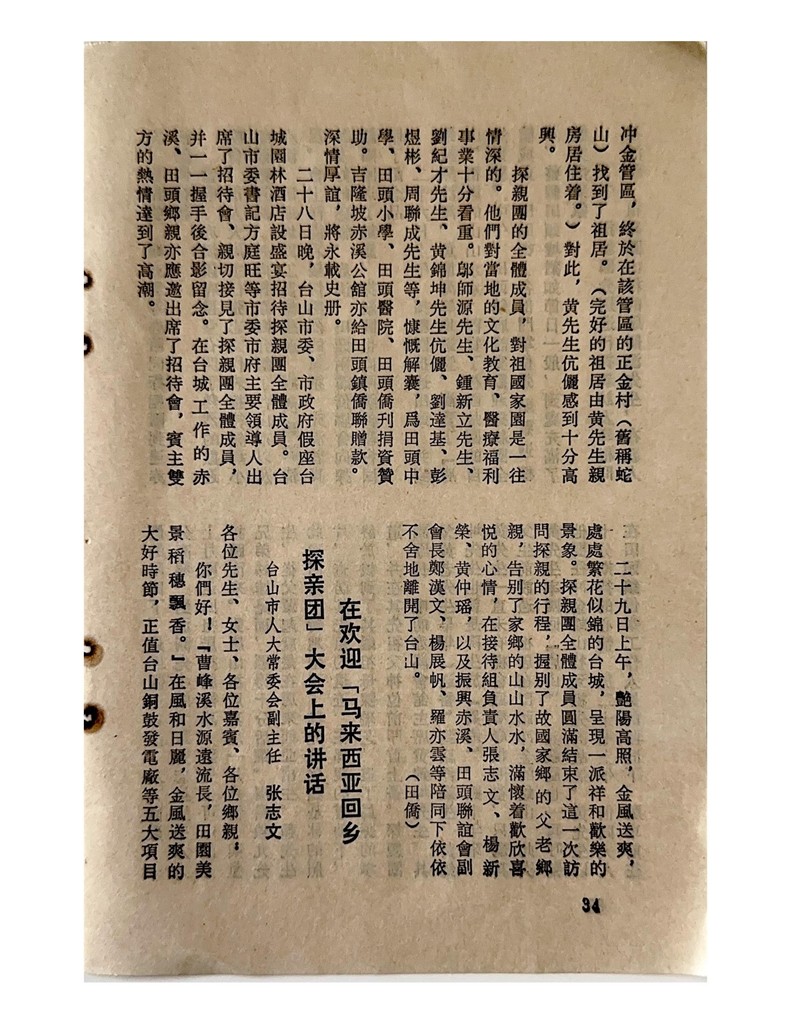 冲金管區，終於在該管區的正金村（舊稱蛇
山）找到了祖居。（完好的祖居由黄先生親
房居住着。）對此，黄先生伉儷感到十分高
興。
探親團的全體成員，對祖國家園是一往
情深的。他們對當地的文化教育、醫療福利
事業十分看重。鄔師源先生、鍾新立先生、
劉紀才先生、黄錦坤先生伉儷、劉達基、彭
煜彬、周聯成先生等，慷慨解囊，爲田頭中
學、田頭小學、田頭醫院、田頭僑刊捐資贊
助。吉隆坡赤溪公館亦給田頭鎮僑聯贈款。
深情厚誼，將永載史册。
二十八日晚，台山市委、市政府假座台
城園林酒店設盛宴招待探親團全體成員。台
山市委書記方庭旺等市委市府主要領導人出
席了招待會、親切接見了探親團全體成員，
并一一握手後合影留念。在台城工作的赤
溪、田頭鄉親亦應邀出席了招待會，賓主雙
方的熱情達到了高潮。
二十九日上午，艷陽高照，金風送爽，
處處繁花似錦的台城，呈現一派祥和歡樂的
景象。探親團全體成員圓滿結束了這一次訪
問探親的行程，握别了故國家鄉的父老鄉
親，告别了家鄉的山山水水，滿懷着歡欣喜
悦的心情，在接待組負責人張志文、楊新
榮、黄仲瑶，以及振興赤溪、田頭聯誼會副
會長鄭漢文、楊展帆、羅亦雲等陪同下依依
不舍地離開了台山。
（田僑）
在欢迎「马来西亚回乡
探亲团」大会上的讲话
台山市人大常委会副主任　张志文
各位先生、女士、各位嘉賓、各位鄉親：
你們好！「曹峰溪水源遠流長，田園美
景稻穗飄香。」在風和日麗，金風送爽的
大好時節，正值台山銅鼓發電廠等五大項目
34